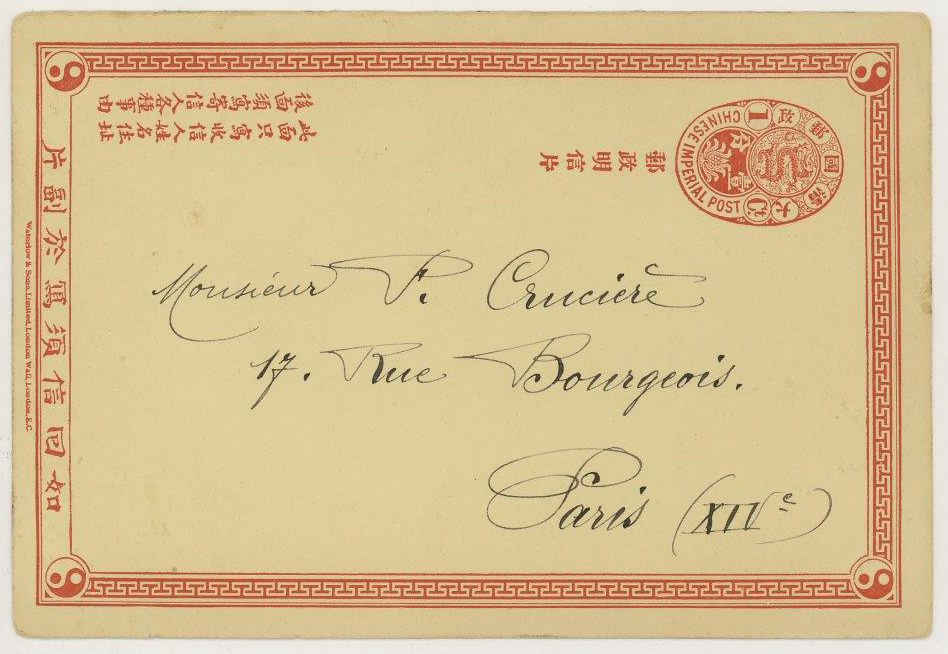 大清國郵政
CHINESE IMPERIAL POST
壹分
1 Ct
郵政明信片
後面須寫寄信人各種事由
此面只寫收信人姓名住址
如回信須寫於副片
Waterlow & Sons, Limited, London Wall, London, E.C.
Monsieur P. Crucière
17. Rue Bourgeois.
Paris (XIVe)